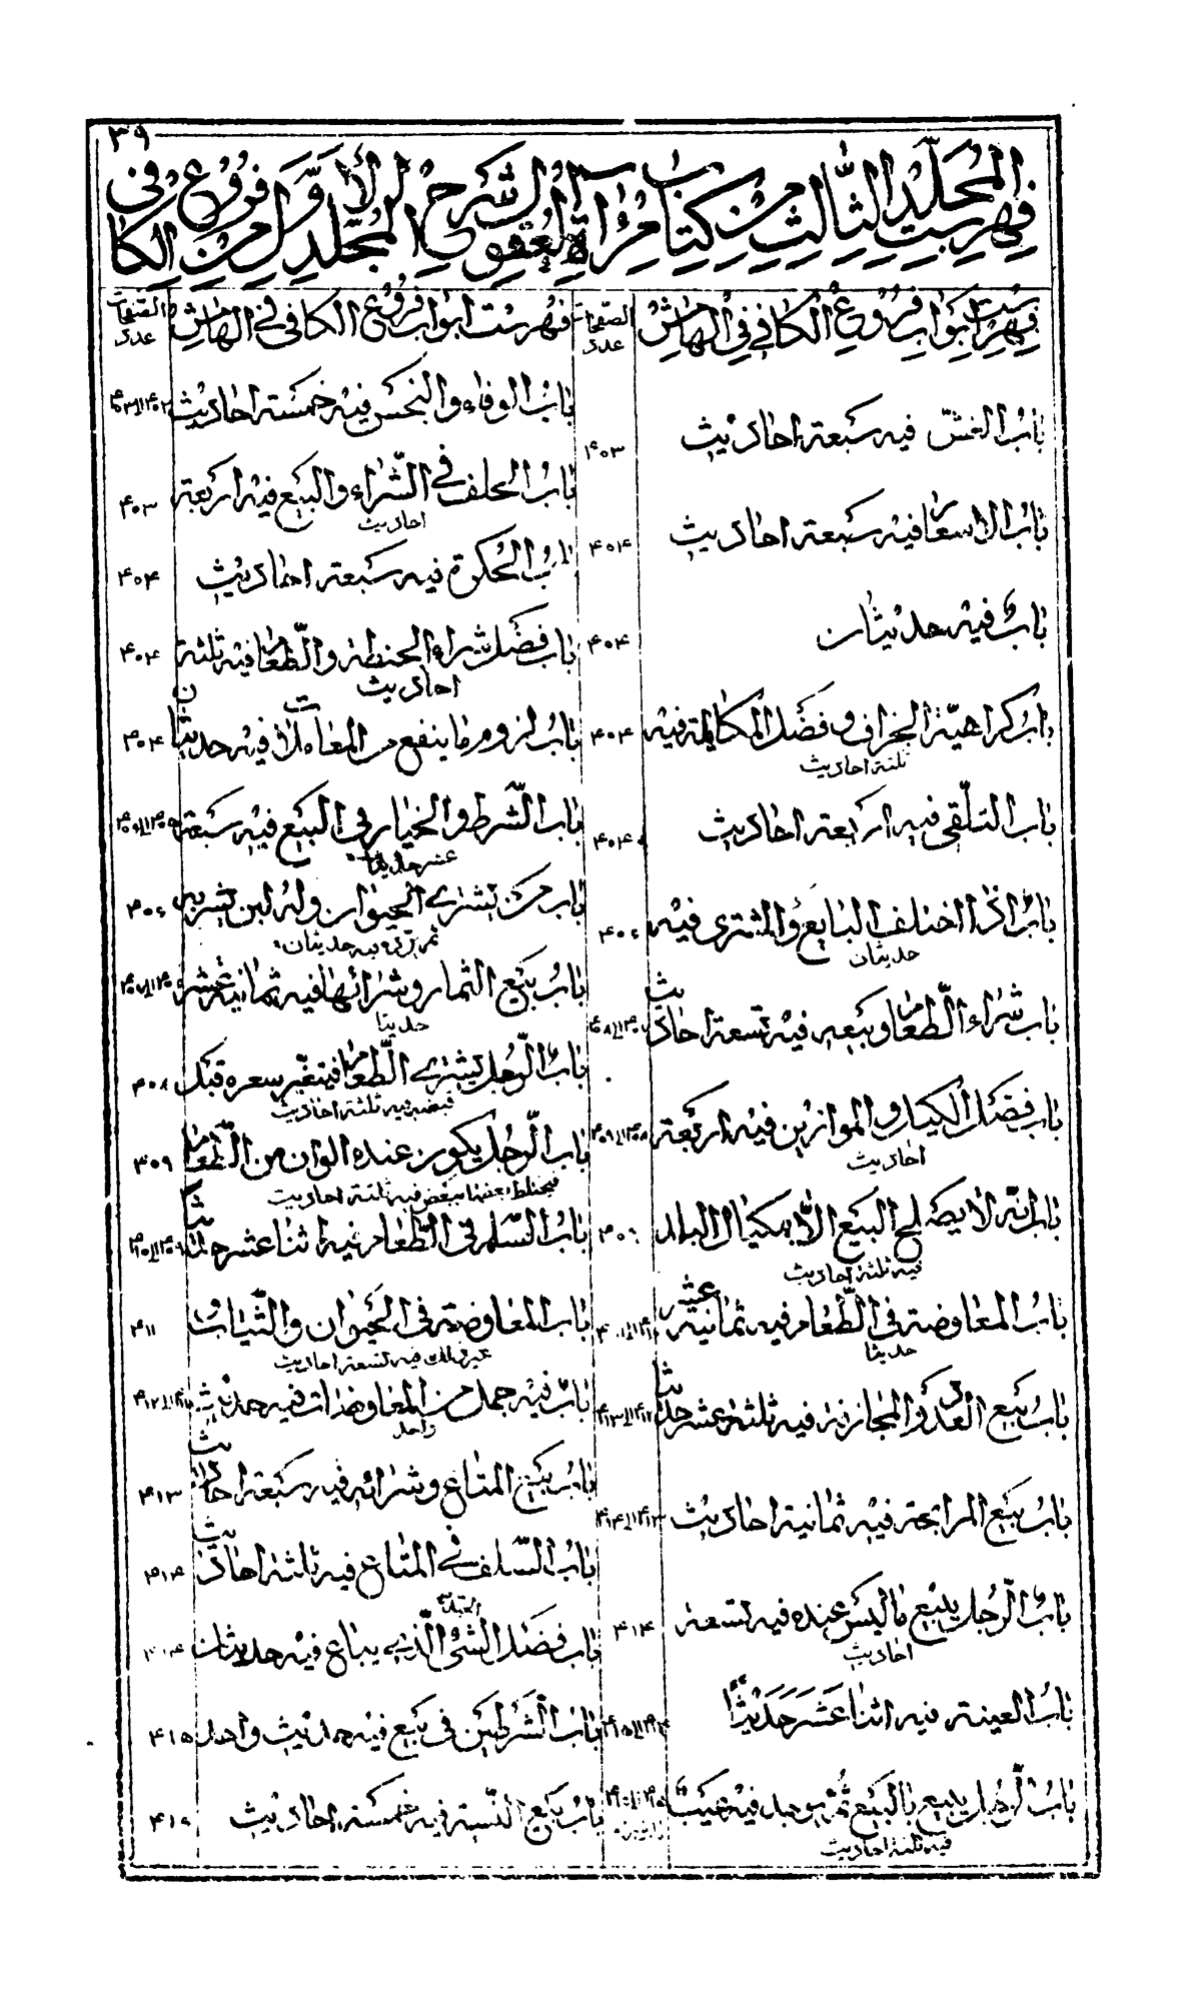 ٣٩
فهرست المجلد الثالث من كتاب مرآة العقول الشرح للمجلد الاول من فروع الكافي
فهرست ابواب فروع الكافي في الهامش
عدد الصفحات
باب الغش فيه سبعة احاديث
۴۰۳
باب الاسعار فيه سبعة احاديث
۴۰۴
باب فيه حديثان
۴۰۴
باب كراهية الجزاف وفضل المكايلة فيه
ثلثة احاديث
۴۰۴
باب التلقي فيه اربعة احاديث
۴۰۴
باب اذا اختلف البايع والمشتري فيه
حديثان
باب شراء الطعام وبيعه فيه تسعة احاديث
باب فضل الكيل والموازين فيه اربعة
احاديث
باب انه لا يصلح البيع الا بمكيال البلد
فيه ثلثة احاديث
باب المعاوضة في الطعام فيه ثمانية عشر
حديثا
باب بيع العدد والمجازفة فيه ثلثة عشر حديثا
۴۱۲ الى ۴۱۳
باب بيع المرابحة فيه ثمانية احاديث
۴۱۳ الى ۴۱۴
باب الرجل يبيع ما ليس عنده فيه تسعة
احاديث
۴۱۴
باب العينة فيه اثنا عشر حديثا
۴۱۴ الى ۴۱۵
باب الرجل يبيع البيع ثم يوجد فيه عيب
فيه ثلثة احاديث
فهرست ابواب فروع الكافي في الهامش
عدد الصفحات
باب الوفاء والبخس فيه خمسة احاديث
۴۰۲ الى ۴۰۳
باب الحلف في الشراء والبيع فيه اربعة
احاديث
۴۰۳
باب الحكرة فيه سبعة احاديث
۴۰۴
باب فضل شراء الحنطة والطعام فيه ثلثة
احاديث
۴۰۴
باب لزوم ما ينفع من المعاملات فيه حديثان
۴۰۴
باب الشرط والخيار في البيع فيه سبعة
عشر حديثا
باب من يشتري الحيوان وله لبن يشربه
ثم يرده فيه حديثان
باب بيع الثمار وشرائها فيه ثمانية عشر
حديثا
باب الرجل يشتري الطعام فيتغير سعره قبل
قبضه فيه ثلثة احاديث
۴۰۸
باب الرجل يكون عنده الوان من الطعام
فيخلط بعضها ببعض فيه ثلثة احاديث
۴۰۹
باب السلم في الطعام فيه اثنا عشر حديثا
باب المعاوضة في الحيوان والثياب
وغير ذلك فيه تسعة احاديث
۴۱۱
باب فيه جمل من المعاوضات فيه حديث
واحد
باب بيع المتاع وشرائه فيه سبعة احاديث
۴۱۳
باب السلف في المتاع فيه ثلثة احاديث
۴۱۴
باب فضل الشئ الذي يباع فيه حديثان
باب الشرطين في بيع فيه حديث واحد
۴۱۵
باب بيع النسية فيه خمسة احاديث